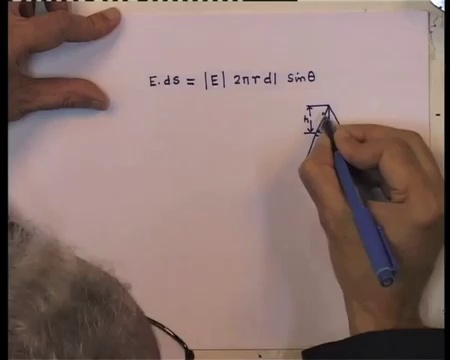 E. ds = |E| 2πr dl sinθ
h